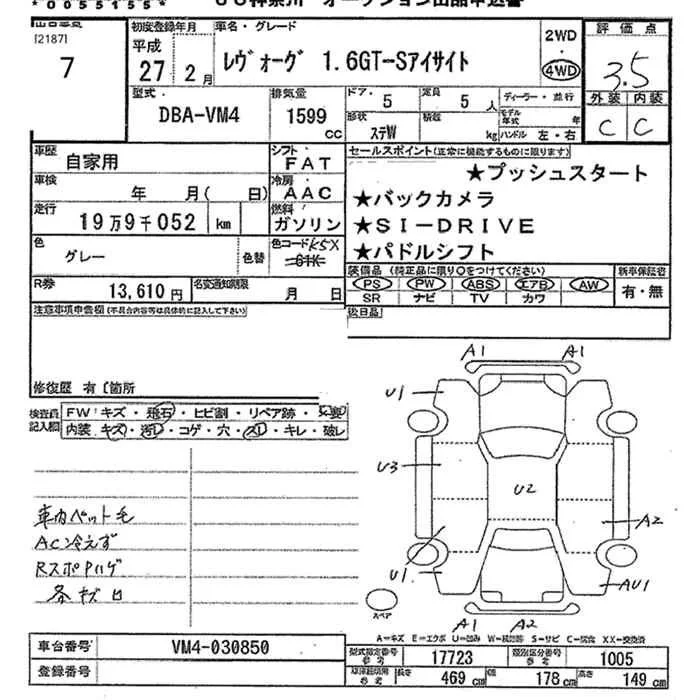 *0055155*
出品番数
[2187]
7
初度登録年月
平成
27年 2月
車名・グレード
レヴォーグ 1.6GT-Sアイサイト
2WD
・
4WD
評価点
3.5
外装 内装
C C
型式
DBA-VM4
排気量
1599
cc
ドア・ 5
定員 5人
形状 ステW
積載 kg
ディーラー・並行
モデル年式 年
ハンドル 左・右
車歴 自家用
シフト FAT
車検 年 月( 日)
冷房 AAC
走行 19万9千052 km
燃料 ガソリン
色 グレー
色替
色コード K5X
61K
R券 13,610円
名変通知期限 月 日
セールスポイント(正常に機能するものに限ります)
★プッシュスタート
★バックカメラ
★SI-DRIVE
★パドルシフト
装備品 (純正品に限り○をつけてください)
PS PW ABS エアB AW
SR ナビ TV カワ
新車保証書
有・無
後日品
注意事項申告欄(不具合内容等は具体的に記入して下さい)
修復歴 有〔箇所
検査員記入欄
FW キズ・飛石・ヒビ割・リペア跡・
内装 キズ・汚レ・コゲ・穴・スレ・キレ・破レ
車内ペット毛
AC冷えず
RスポPハゲ
各キズ凹
A1 A1
U1
U3
U2
A2
U1
AU1
A1 A2
スペア
A=キズ E=エクボ U=凹み W=補修跡 S=サビ C=腐食 XX=交換済
車台番号 VM4-030850
登録番号
型式指定番号 参考 17723
類別区分番号 参考 1005
参考 長さ 469 cm 幅 178 cm 高さ 149 cm